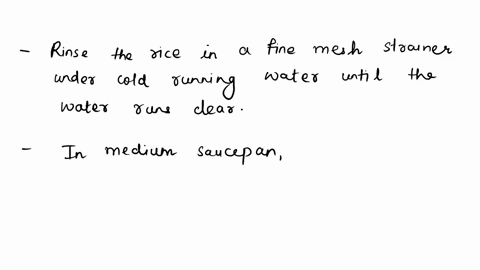 - Rinse the rice in a fine mesh strainer
under cold running water until the
water runs clear.
- In medium saucepan,